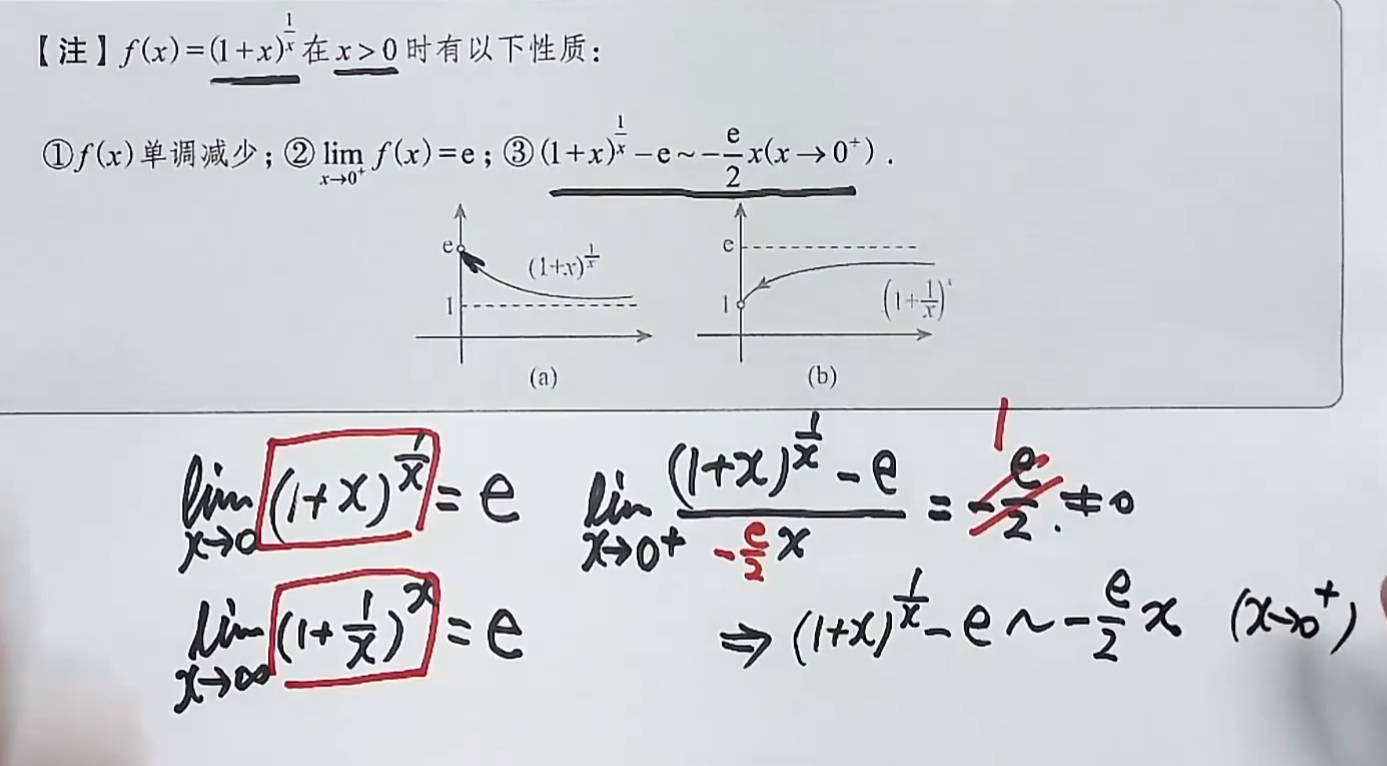 【注】f(x)=(1+x)^{1/x}在x>0时有以下性质：
①f(x)单调减少；②lim_{x→0⁺} f(x)=e；③(1+x)^{1/x}-e~-e/2 x(x→0⁺).
e
(1+x)^{1/x}
1
(a)
e
1
(1+1/x)^x
(b)
lim_{x→0} (1+x)^{1/x} = e
lim_{x→∞} (1+1/x)^x = e
lim_{x→0⁺} ((1+x)^{1/x} - e)/(-e/2 x) = -e/2. ≠0
1
⇒ (1+x)^{1/x} - e ~ -e/2 x (x→0⁺)